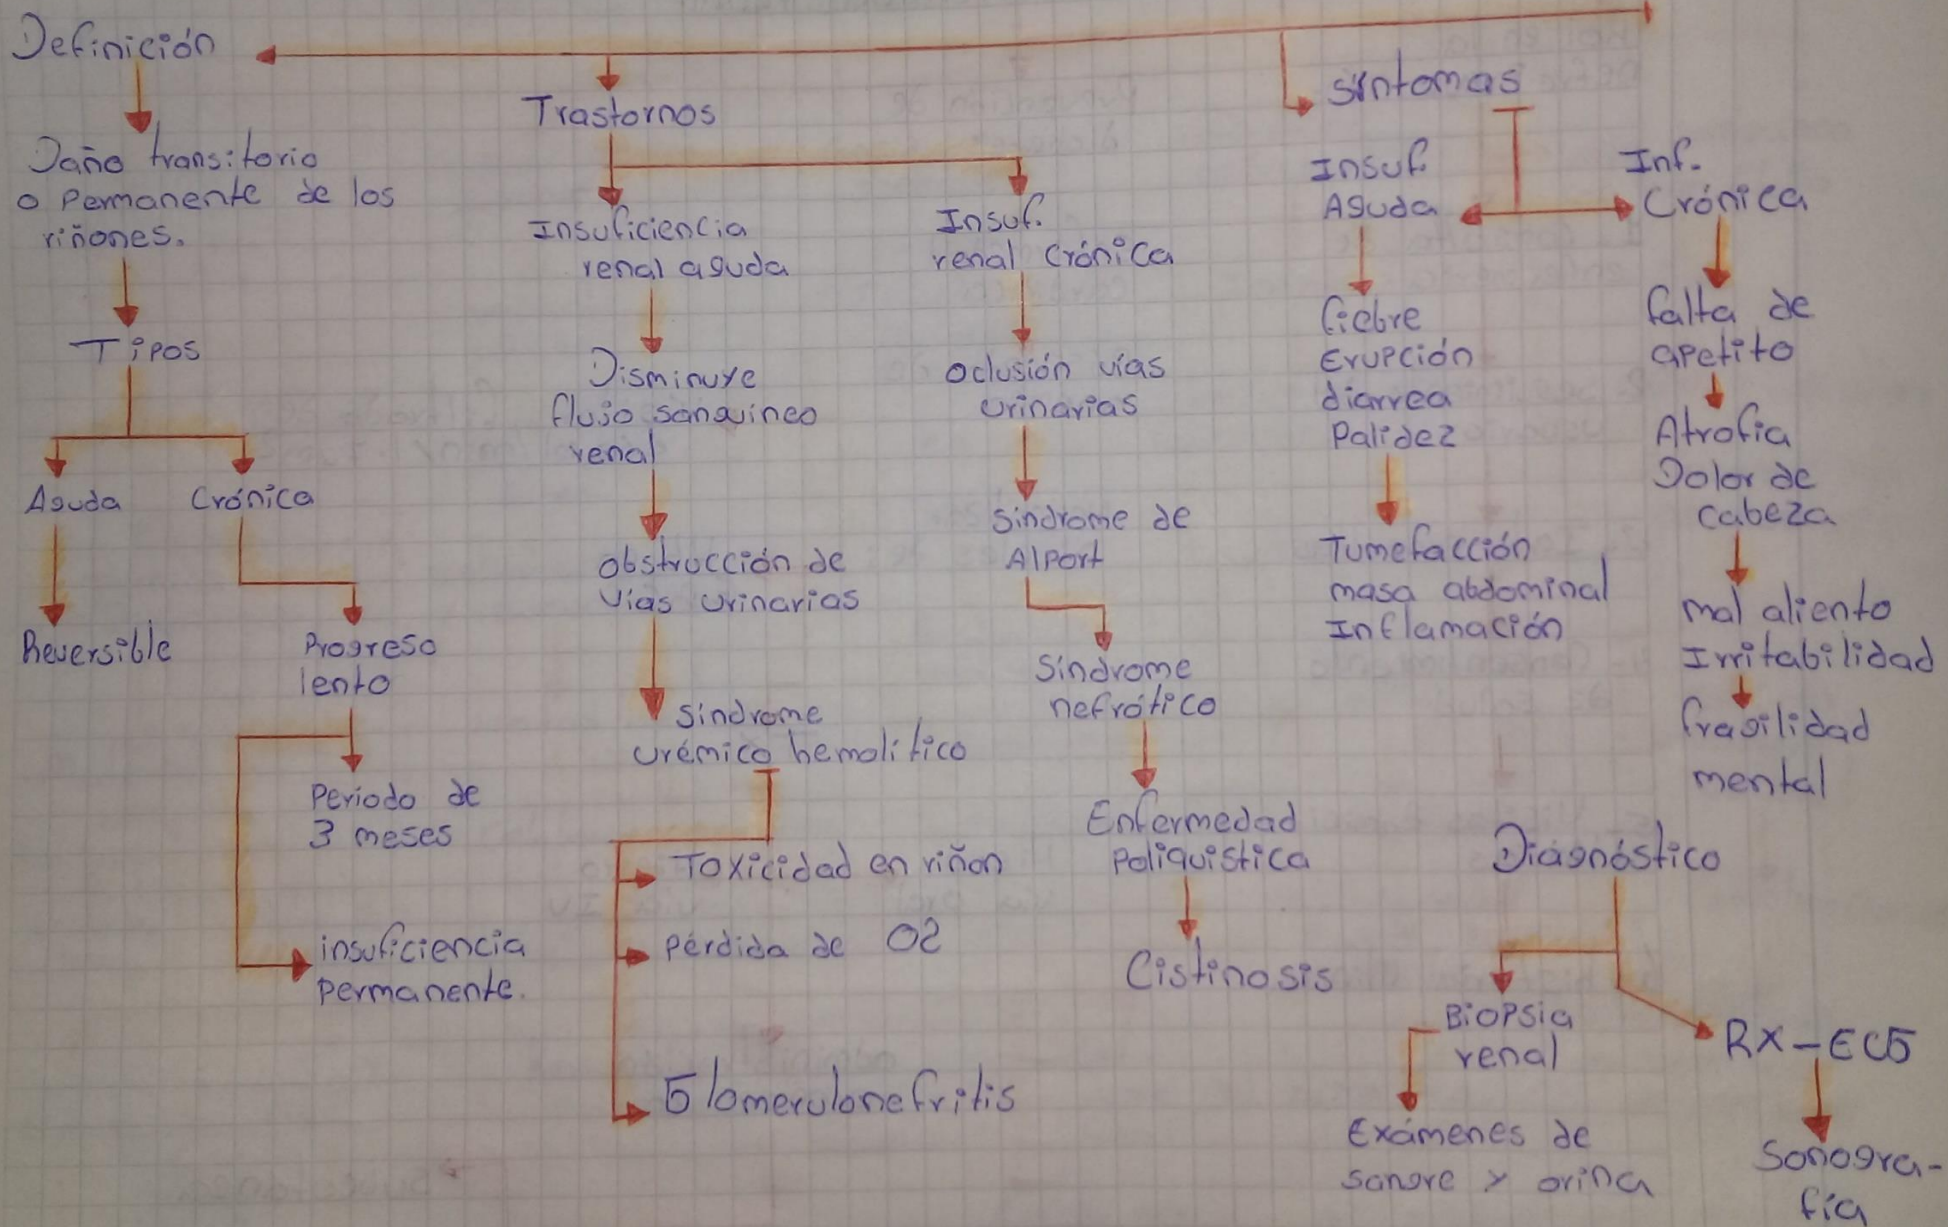 Definición
Daño transitorio
o Permanente de los
riñones.
Tipos
Aguda
Crónica
Reversible
Progreso
lento
Periodo de
3 meses
insuficiencia
permanente.
Trastornos
Insuficiencia
renal aguda
Disminuye
flujo sanguíneo
renal
obstrucción de
vías urinarias
Síndrome
urémico hemolítico
Toxicidad en riñon
Pérdida de O2
Glomerulonefritis
Insuf.
renal Crónica
Oclusión vías
urinarias
Síndrome de
Alport
Síndrome
nefrótico
Enfermedad
Poliquistica
Cistinosis
Síntomas
Insuf.
Aguda
fiebre
Erupción
diarrea
Palidez
Tumefacción
masa abdominal
Inflamación
Inf.
Crónica
falta de
apetito
Atrofia
Dolor de
cabeza
mal aliento
Irritabilidad
fragilidad
mental
Diagnóstico
Biopsia
renal
Exámenes de
sangre y orina
RX-ECG
Sonogra-
fía